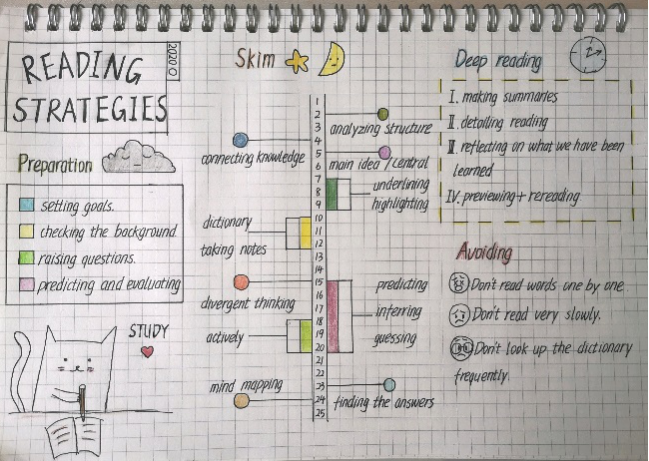 READING
STRATEGIES
Preparation
setting goals.
checking the background
raising questions.
predicting and evaluating
STUDY
Skim
1
2
3
4
5
6
7
8
9
10
11
12
13
14
15
16
17
18
19
20
21
22
23
24
25
connecting knowledge
dictionary
taking notes
divergent thinking
actively
mind mapping
analyzing structure
main idea / central
underlining
highlighting
predicting
inferring
guessing
finding the answers
Deep reading
I. making summaries
II. detailing reading
III. reflecting on what we have been
learned
IV. previewing + rereading
Avoiding
Don't read words one by one
Don't read very slowly.
Don't look up the dictionary
frequently.